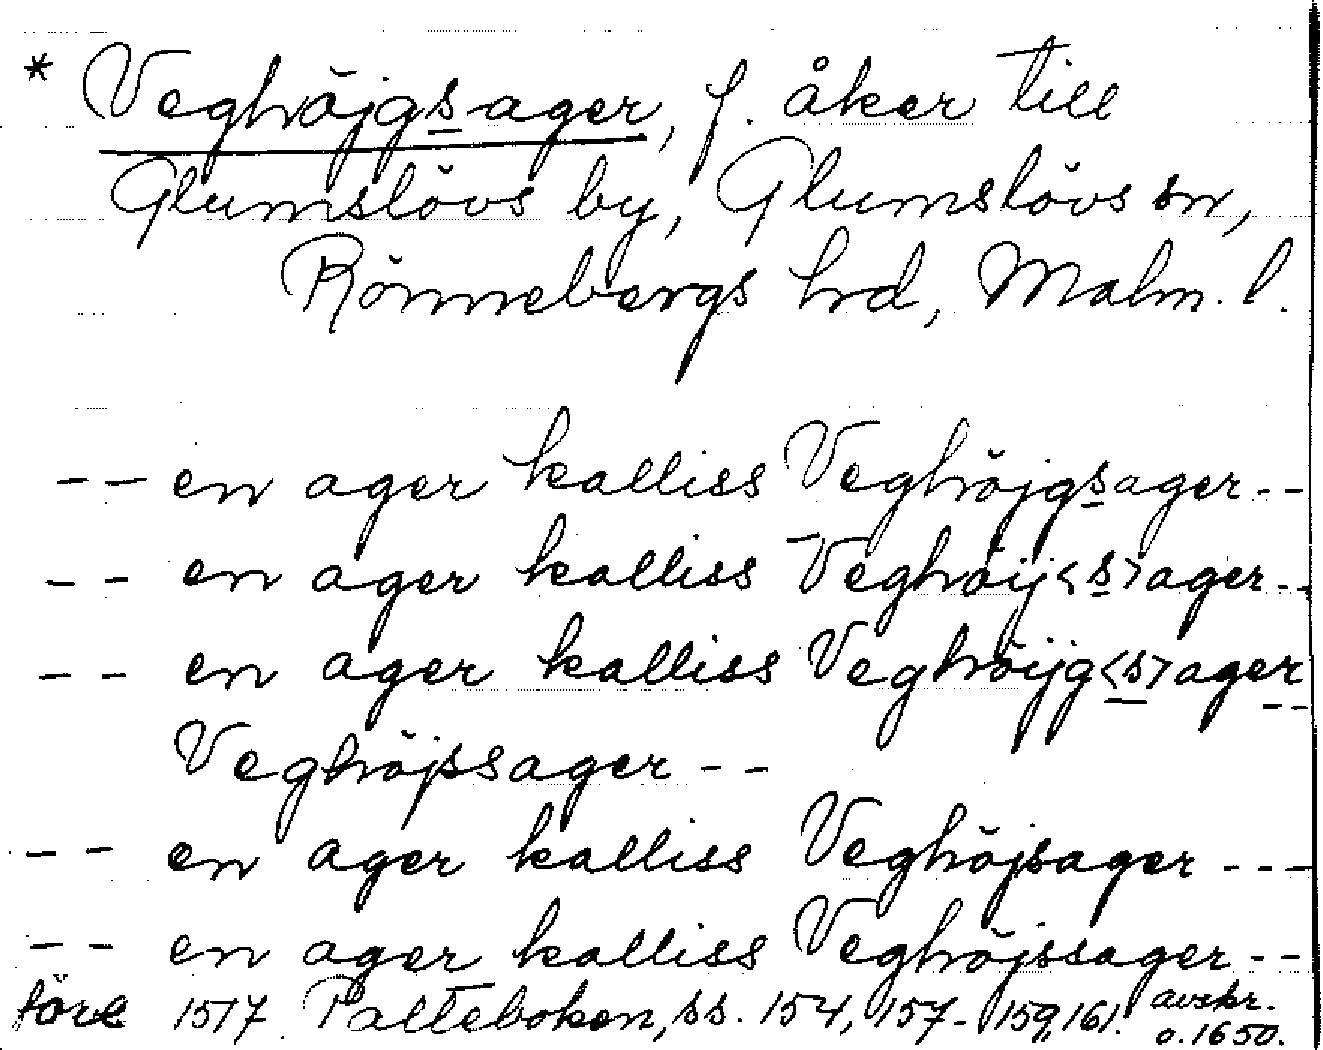 * Veghöjgsager, f. åker till
Glumslövs by, Glumslövs sn,
Rönnebergs hrd, Malm. l.
-- en ager kalliss Veghöjgsager --
-- en ager kalliss Veghöij<s>ager --
-- en ager kalliss Veghöijg<s>ager --
Veghöjssager --
-- en ager kalliss Veghöjsager ---
-- en ager kalliss Veghöjssager --
före 1517 Palteboken, ss. 154, 157-159, 161. avskr.
o. 1650.